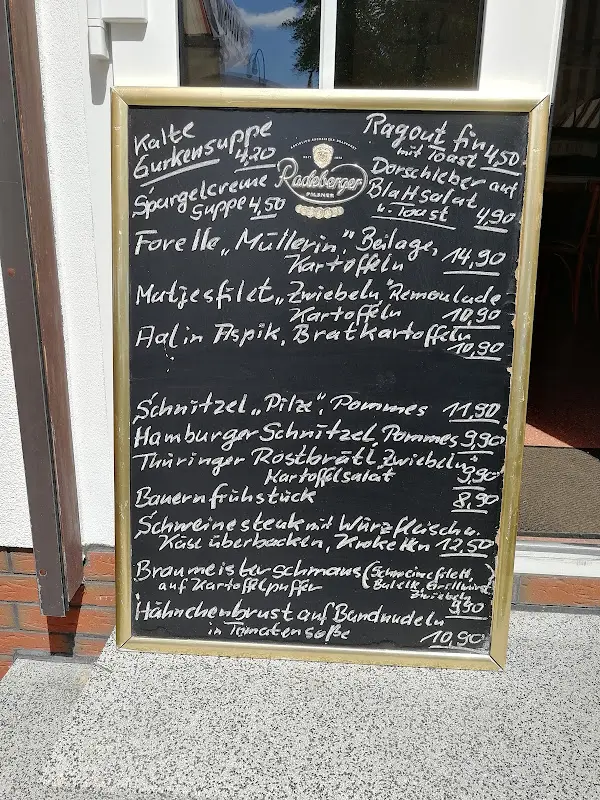 Kalte
Gurkensuppe
4,20
Spargelcreme
Suppe 4,50
Radeberger
PILSNER
Ragout fin
mit Toast 4,50
Dorschleber auf
Blattsalat
u. Toast 4,90
Forelle „Müllerin", Beilage,
Kartoffeln 14,90
Matjesfilet „Zwiebeln" Remoulade
Kartoffeln 10,90
Aal in Aspik, Bratkartoffeln
10,90
Schnitzel „Pilze", Pommes 11,90
Hamburger Schnitzel, Pommes 9,90
Thüringer Rostbrätl „Zwiebeln"
Kartoffelsalat 9,90
Bauernfrühstück 8,90
Schweinesteak mit Würzfleisch u.
Käse überbacken, Kroketten 12,50
Braumeisterschmaus (Schweinefilett,
auf Kartoffelpuffer
Zwiebeln)
9,90
Hähnchenbrust auf Bandnudeln
in Tomatensoße 10,90